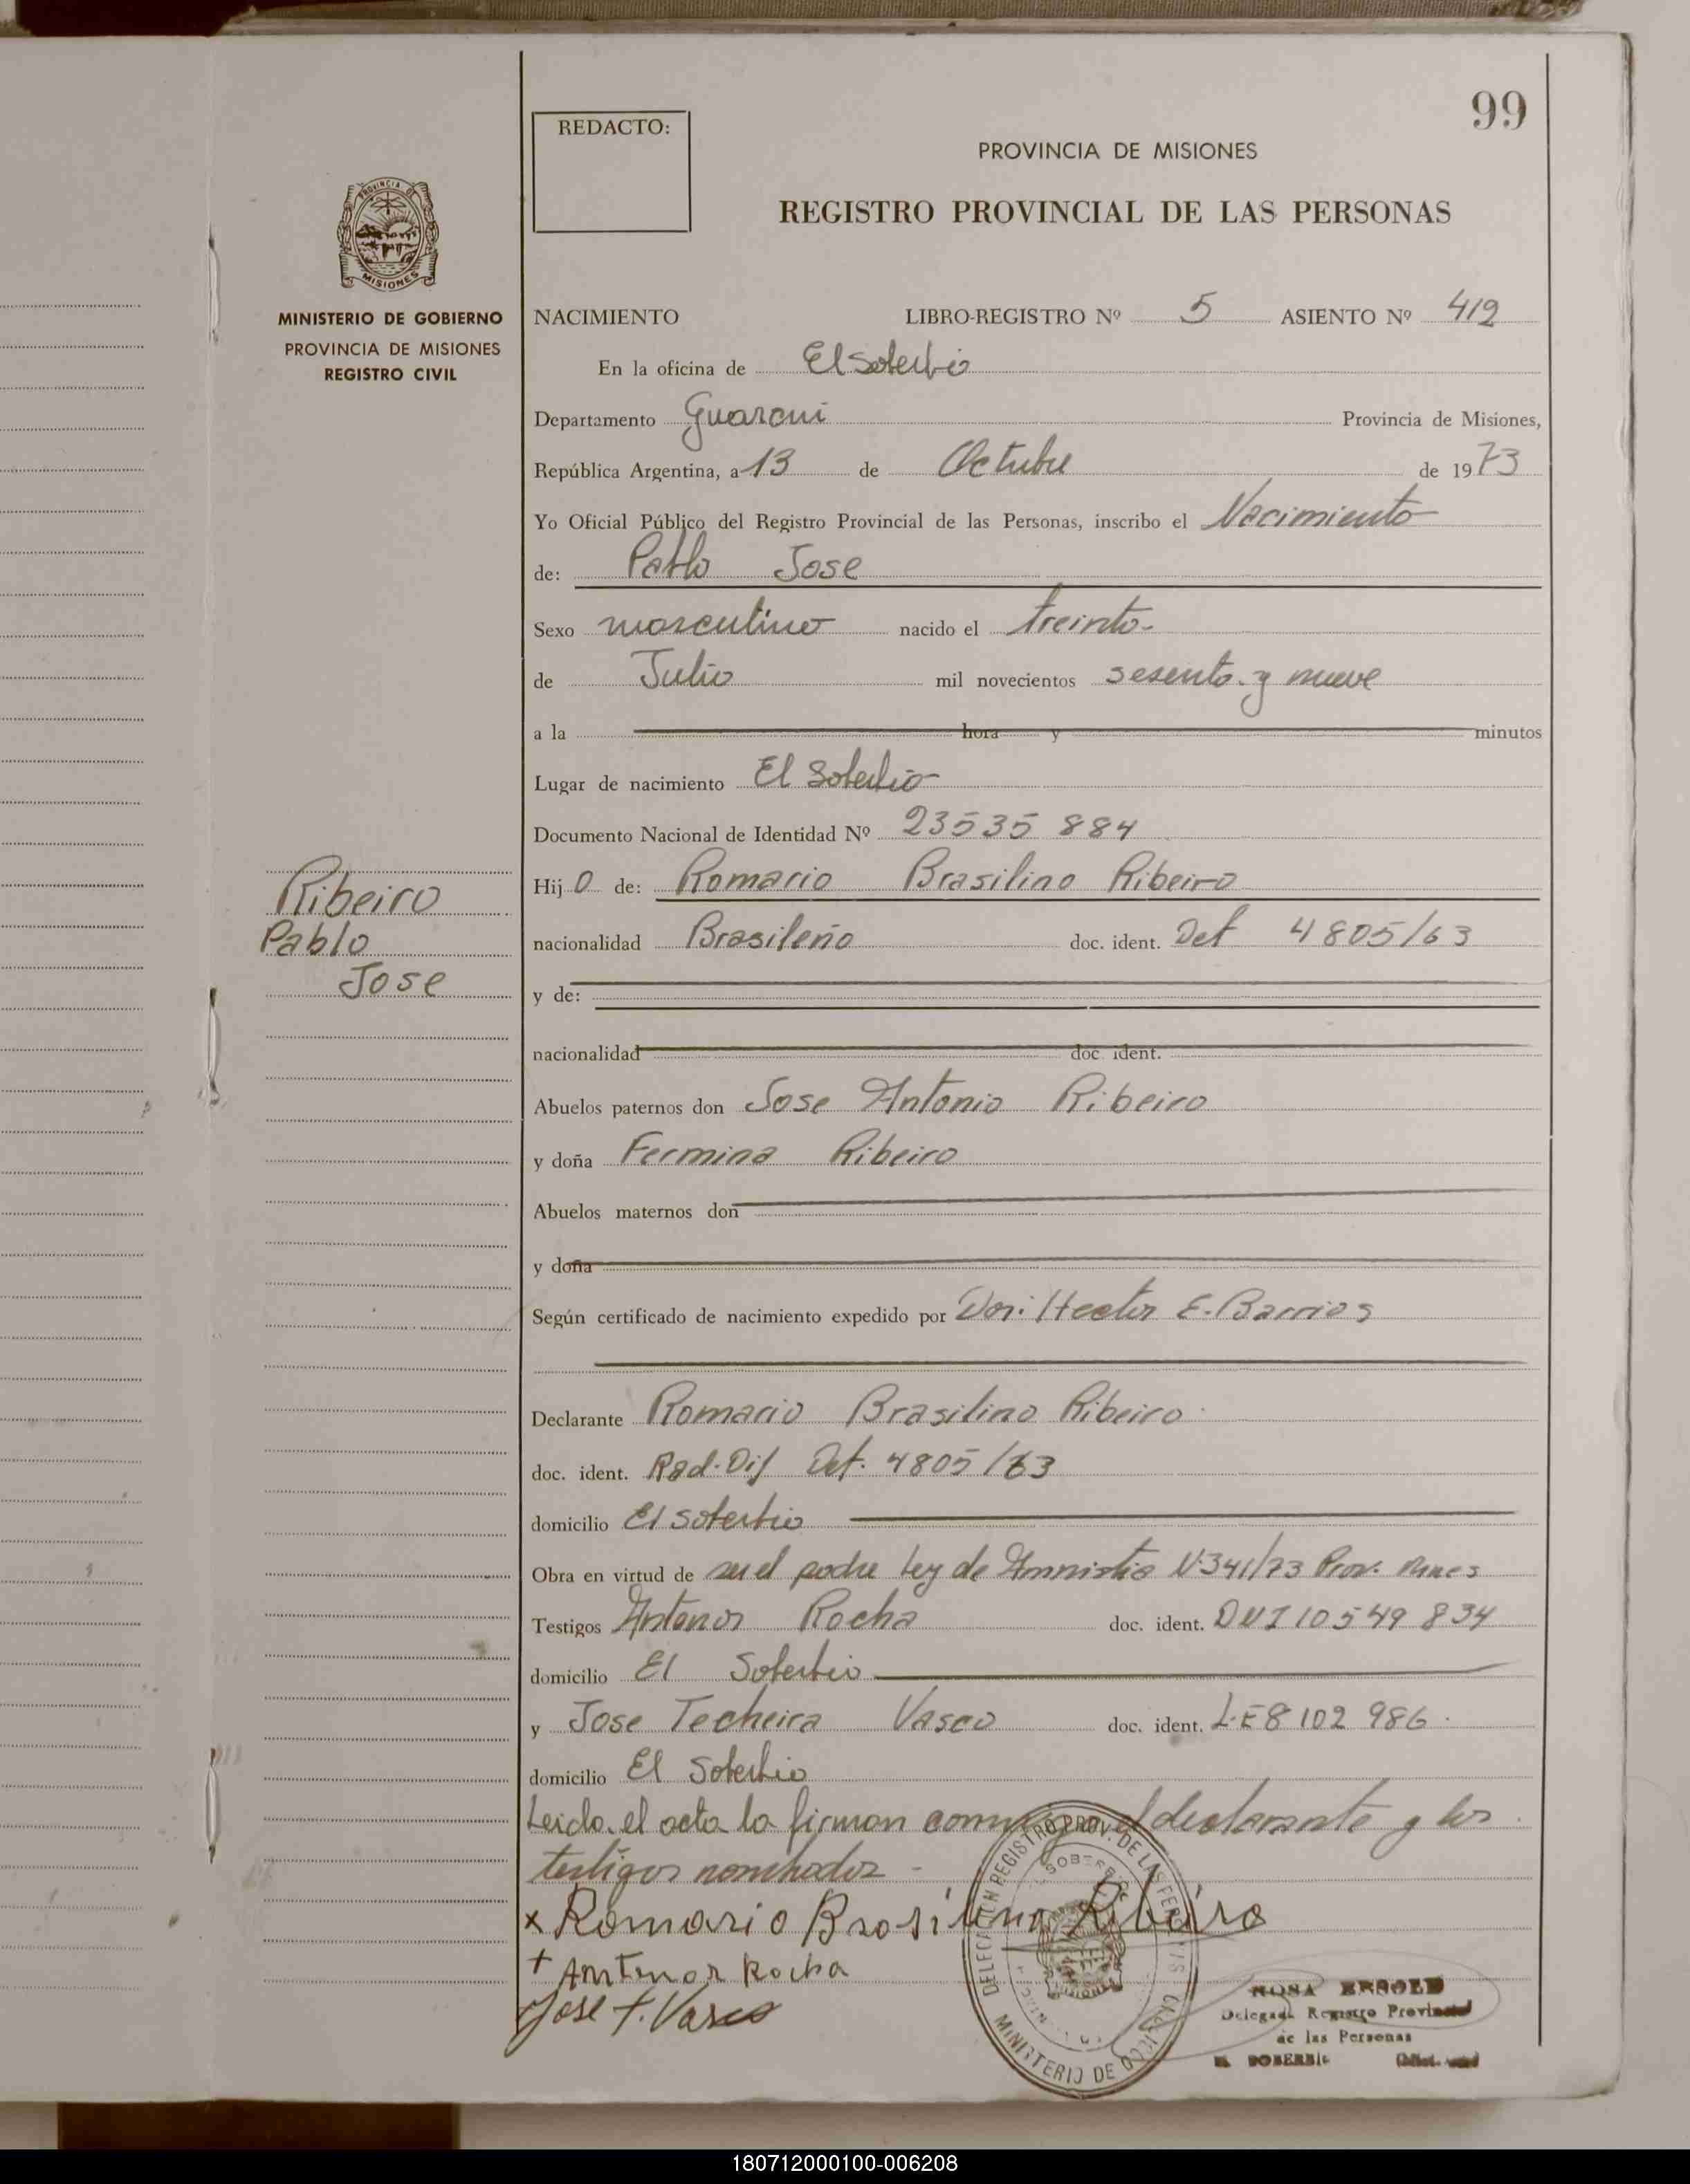 99
REDACTO:
PROVINCIA DE MISIONES
REGISTRO PROVINCIAL DE LAS PERSONAS
PROVINCIA DE
MISIONES
MINISTERIO DE GOBIERNO
PROVINCIA DE MISIONES
REGISTRO CIVIL
NACIMIENTO LIBRO-REGISTRO Nº 5 ASIENTO Nº 412
En la oficina de El Soberbio
Departamento Guarani Provincia de Misiones,
República Argentina, a 13 de Octubre de 1973
Yo Oficial Público del Registro Provincial de las Personas, inscribo el Nacimiento
de: Pablo Jose
Sexo masculino nacido el treinta
de Julio mil novecientos sesenta y nueve
a la hora y minutos
Lugar de nacimiento El Soberbio
Documento Nacional de Identidad Nº 23535 884
Hijo de: Romario Brasilino Ribeiro
nacionalidad Brasileño doc. ident. Det 4805/63
Ribeiro
Pablo
Jose
y de:
nacionalidad doc. ident.
Abuelos paternos don Jose Antonio Ribeiro
y doña Fermina Ribeiro
Abuelos maternos don
y doña
Según certificado de nacimiento expedido por Hector E. Barrios
Declarante Romario Brasilino Ribeiro
doc. ident. Rad. Dif Det. 4805/63
domicilio El Soberbio
Obra en virtud de ser el padre Ley de Amnistia N·341/73 Prov. Mnes
Testigos Antenor Rocha doc. ident. DNI 10549 834
domicilio El Soberbio
y Jose Techeira Vasco doc. ident. L·E 8 102 986
domicilio El Soberbio
Leida el acta la firman conmigo el declarante y los
testigos nombrados -
x Romario Brasilino Ribeiro
+ Antenor Rocha
Jose T. Vasco
DELEGACION REGISTRO PROV. DE LAS PERSONAS
SOBERBIO
MISIONES
MINISTERIO DE
ROSA
Delegada Registro Provincial
de las Personas
EL SOBERBIO
180712000100-006208